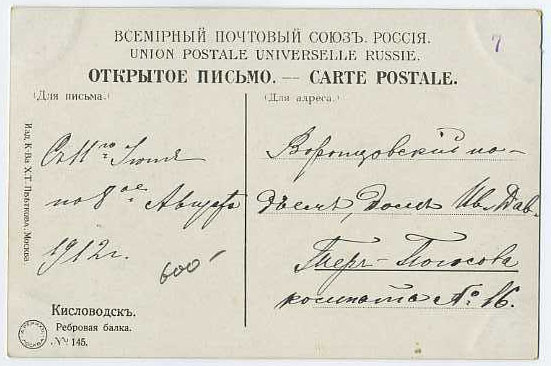 ВСЕМІРНЫЙ ПОЧТОВЫЙ СОЮЗЪ. РОССІЯ.
UNION POSTALE UNIVERSELLE RUSSIE.
ОТКРЫТОЕ ПИСЬМО. — CARTE POSTALE.
7
(Для письма.)
(Для адреса.)
Съ 11го Іюня
по 8ое Августа
1912 г.
600
Воронцовскій по-
дъемъ, домъ Ив. Дав.
Теръ-Погосова
комната № 16.
Кисловодскъ.
Ребровая балка.
№ 145.